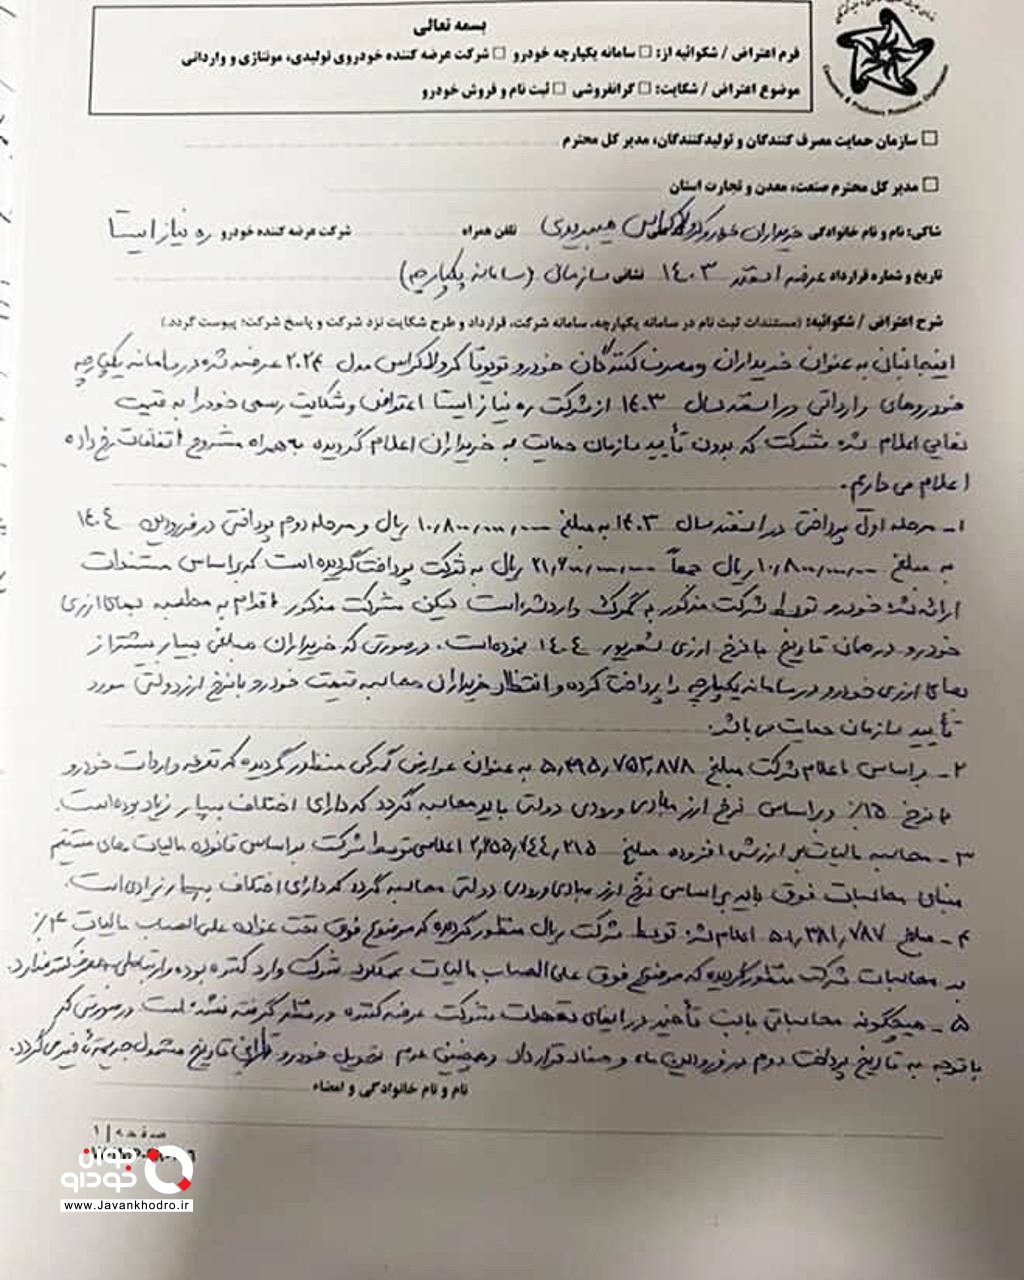 بسمه تعالی
فرم اعتراض / شکوائیه از: □ سامانه یکپارچه خودرو □ شرکت عرضه کننده خودروی تولیدی، مونتاژی و وارداتی
موضوع اعتراض / شکایت: □ گرانفروشی □ ثبت نام و فروش خودرو
□ سازمان حمایت مصرف کنندگان و تولیدکنندگان، مدیر کل محترم
□ مدیر کل محترم صنعت، معدن و تجارت استان
شاکی: نام و نام خانوادگی خریداران خودرو کرولا کراس هیبریدی تلفن همراه شرکت عرضه کننده خودرو ره نیاز ایستا
تاریخ و شماره قرارداد عرضه اسفند ۱۴۰۳ نشانی سازمان (سامانه یکپارچه)
شرح اعتراض / شکوائیه: (مستندات ثبت نام در سامانه یکپارچه، سامانه شرکت، قرارداد و طرح شکایت نزد شرکت و پاسخ شرکت؛ پیوست گردد.)
اینجانبان به عنوان خریداران و مصرف کنندگان خودرو تویوتا کرولا کراس مدل ۲۰۲۴ عرضه شده در سامانه یکپارچه
خودروهای وارداتی در اسفند سال ۱۴۰۳ از شرکت ره نیاز ایستا اعتراض و شکایت رسمی خود را به قیمت
نهایی اعلام شده شرکت که بدون تأیید سازمان حمایت به خریداران اعلام گردیده به همراه مشروح اتفاقات رخ داده
اعلام می داریم.
۱- مرحله اول پرداختی در اسفند سال ۱۴۰۳ به مبلغ ۱۰,۸۰۰,۰۰۰,۰۰۰ ریال و مرحله دوم پرداختی در فروردین ۱۴۰۴
به مبلغ ۱۰,۸۰۰,۰۰۰,۰۰۰ ریال جمعاً ۲۱,۶۰۰,۰۰۰,۰۰۰ ریال به شرکت پرداخت گردیده است که براساس مستندات
ارائه شده خودرو توسط شرکت مذکور به گمرک وارد شده است لیکن شرکت مذکور اقدام به مطالبه بهای ارزی
خودرو در همان تاریخ با نرخ ارزی شهریور ۱۴۰۴ نموده است. در صورتی که خریداران مبلغی بسیار بیشتر از
بهای ارزی خودرو در سامانه یکپارچه را پرداخت کرده و انتظار خریداران محاسبه قیمت خودرو با نرخ ارز دولتی مورد
تأیید سازمان حمایت می باشد.
۲- براساس اعلام شرکت مبلغ ۵,۴۹۵,۷۵۲,۸۷۸ به عنوان عوارض گمرکی منظور گردیده که تعرفه واردات خودرو
با نرخ ۱۵٪ و براساس نرخ ارز مبادی ورودی دولتی باید محاسبه گردد که دارای اختلاف بسیار زیاد بوده است.
۳- محاسبه مالیات بر ارزش افزوده مبلغ ۲,۲۵۵,۷۴۴,۲۱۵ اعلامی توسط شرکت براساس قانون مالیات های مستقیم
مبنای محاسبات فوق باید بر اساس نرخ ارز مبادی ورودی دولتی محاسبه گردد که دارای اختلاف بسیار زیادی است.
۴- مبلغ ۵۱,۳۸۱,۷۸۷ اعلام شده توسط شرکت ریال منظور گردیده که موضوع فوق تحت عنوان علی الحساب مالیات ۴٪
به محاسبات شرکت منظور گردیده که موضوع فوق علی الحساب مالیات عملکرد شرکت وارد کننده بوده و ارتباطی به مصرف کننده ندارد.
۵- هیچگونه محاسباتی بابت تأخیر در ایفای تعهدات شرکت عرضه کننده در نظر گرفته نشده است در صورتی که
با توجه به تاریخ پرداخت دوم در فروردین ماه و مفاد قرارداد و همچنین عدم تحویل خودرو تا این تاریخ مشمول جریمه تأخیر می گردد.
نام و نام خانوادگی و امضاء
صفحه | ۱
جوان خودرو
www.Javankhodro.ir